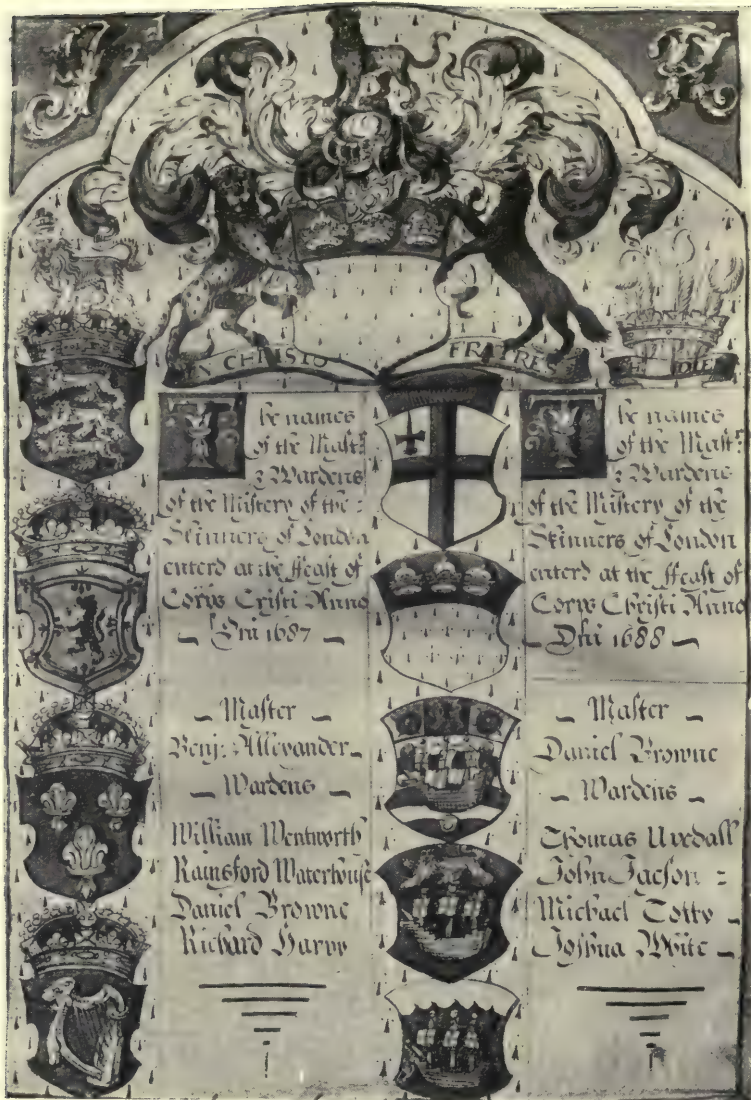 J 2d R
IN CHRISTO FRATRES
ICH DIEN
The names
of the Mastr
& Wardens
of the Mistery of the :
Skinners of London
enterd at the ffeast of
Corps Cristi Anno
Dni 1687
Master
Benj: Allexander
Wardens
William Wentworth
Rainsford Waterhouse
Daniel Browne
Richard Harvy
The names
of the Mastr
& Wardens
of the Mistery of the
Skinners of London
enterd at the ffeast of
Corps Christi Anno
Dni 1688
Master
Daniel Browne
Wardens
Thomas Uvedall
John Jacson :
Michael Totty
Joshua White